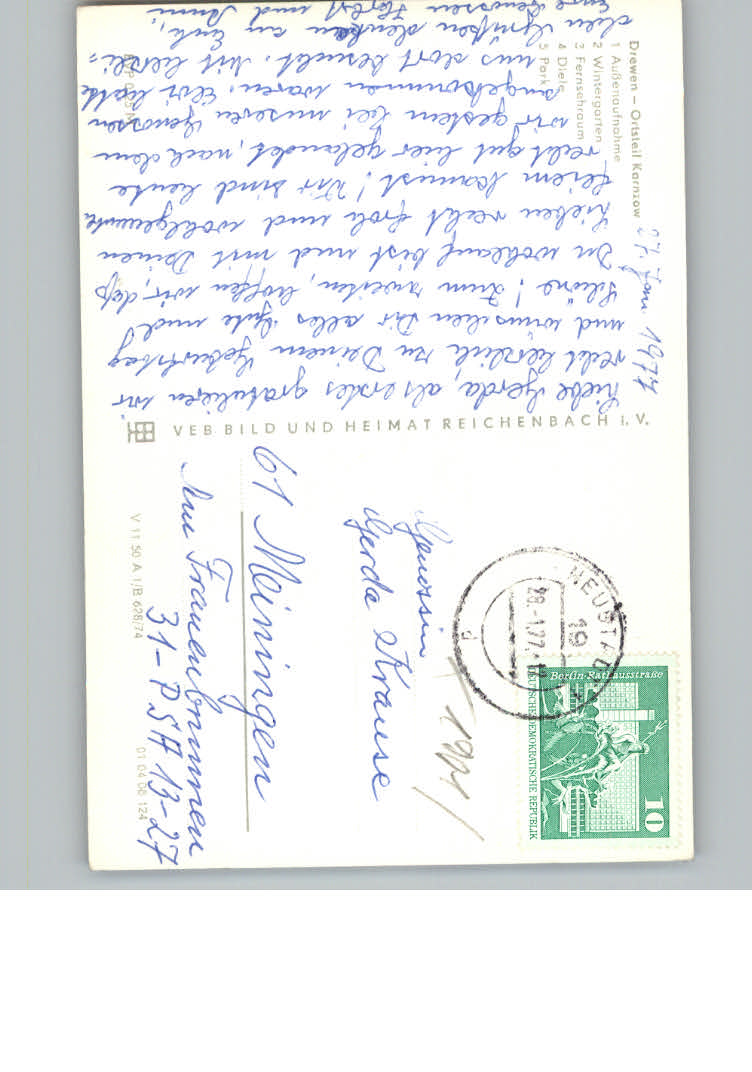 Drewen – Ortsteil Karnzow
1 Außenaufnahme
2 Wintergarten
3 Fernsehraum
4 Diele
5 Park
27. Jan 1977
Liebe Gerda, als erstes gratulieren wir
recht herzlich zu Deinem Geburtstag
und wünschen Dir alles Gute und
Schöne! Zum zweiten, hoffen wir, daß
Du wohlauf bist und mit Deinen
Lieben recht froh und wohlgemute
feiern kannst! Wir sind heute
recht gut hier gelandet, nach dem
wir gestern bei unseren Genossen
angekommen waren. Elvi hatte
uns dort besucht. Mit herzli-
chen Grüßen denken an Euch,
Eure Genossen Horst und
VEB BILD UND HEIMAT REICHENBACH I. V.
V 11 50 A 1/B 628/74
01 04 06 124
NEUSTADT
19
28.-1.77.
10
Berlin-Rathausstraße
DEUTSCHE DEMOKRATISCHE REPUBLIK
Genossin
Gerda Krause
61 Meiningen
Am Frauenbrunnen
31-PSH 13-27